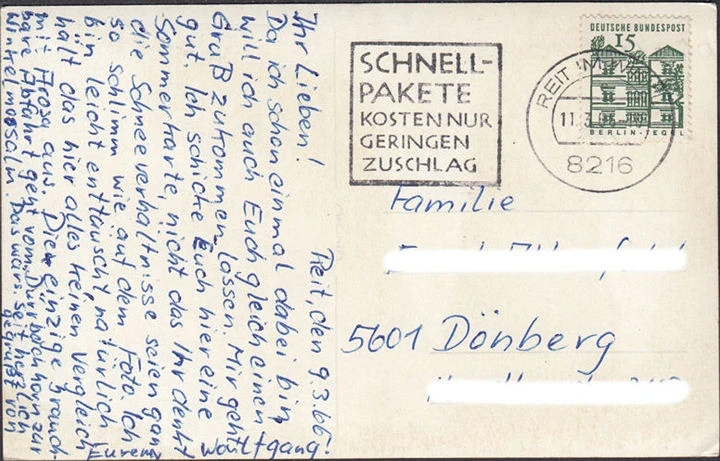 Reit, den 9.3.66.
Ihr Lieben!
Da ich schon einmal dabei bin
will ich auch Euch gleich einen
Gruß zukommen lassen. Mir geht's
gut. Ich schicke Euch hier eine
Sommerkarte, nicht das Ihr denkt
die Schneeverhältnisse seien ganz
so schlimm wie auf dem Foto. Ich
bin leicht enttäuscht, natürlich
hält das hier alles keinen Vergleich
mit Arosa aus. Die einzige brauch-
bare Abfahrt geht vom Dürrnbachhorn zur
Winkelmoosalm. Das wärs. Seit herzlich
gegrüßt von
Eurem
Wolfgang
SCHNELL-
PAKETE
KOSTEN NUR
GERINGEN
ZUSCHLAG
REIT IM WINKL
8216
DEUTSCHE BUNDESPOST
15
BERLIN-TEGEL
Familie
5601 Dönberg